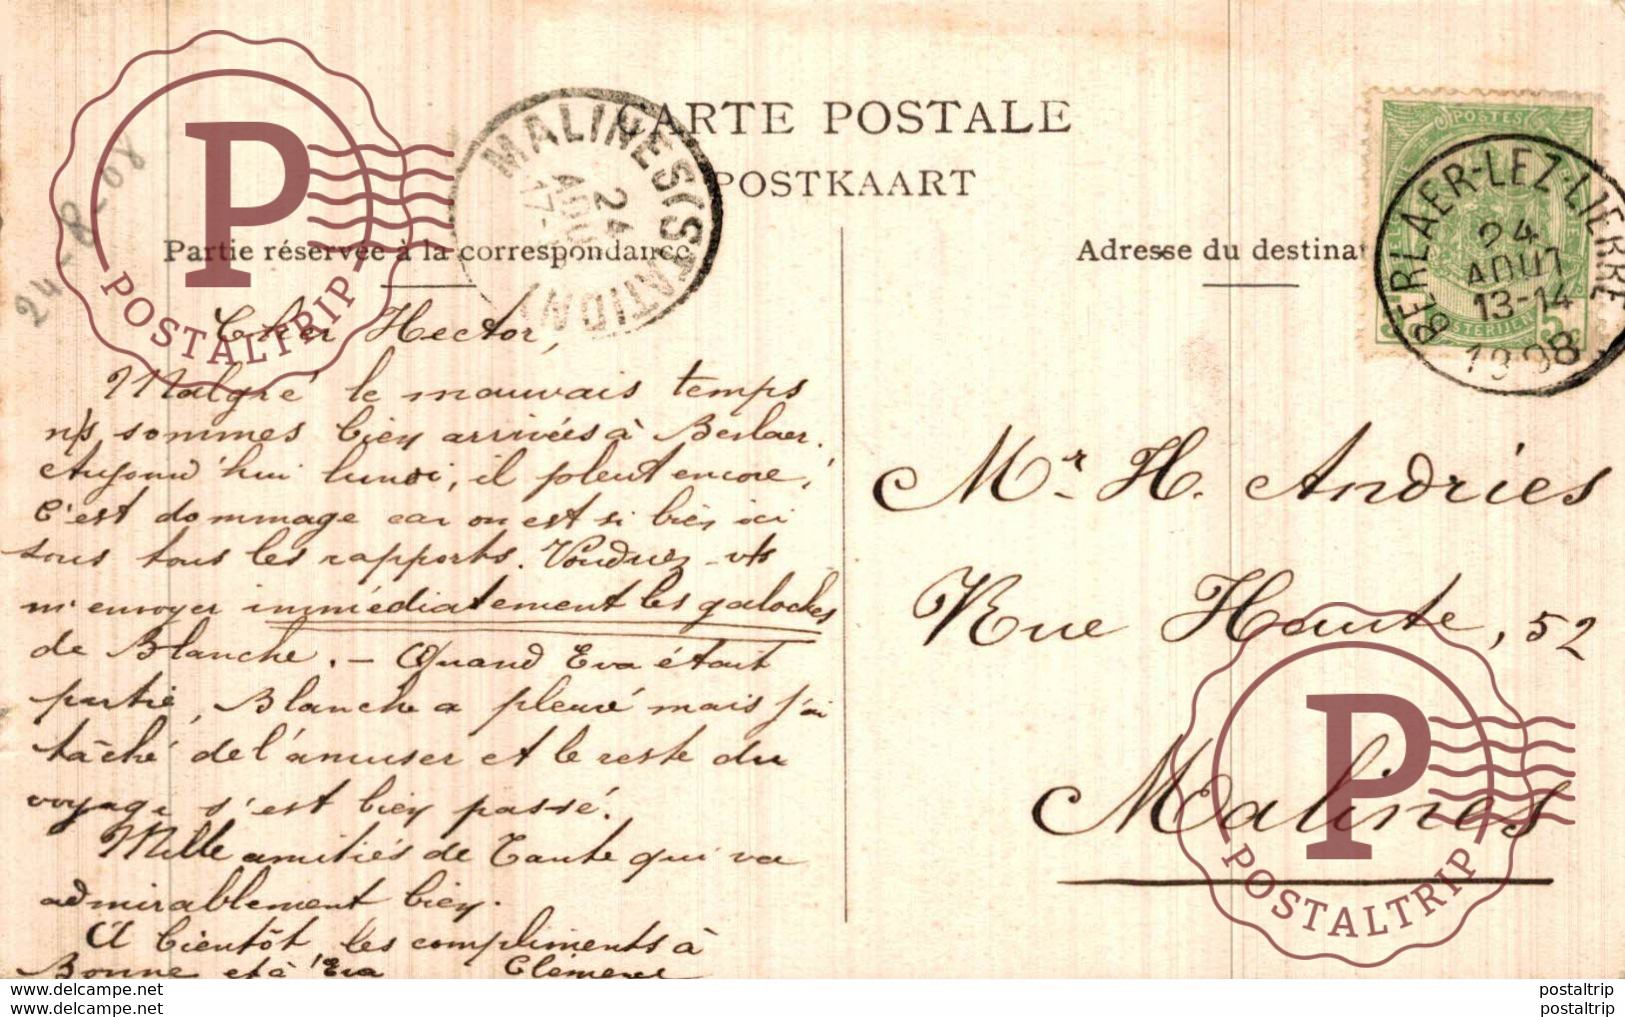 CARTE POSTALE
POSTKAART
Partie réservée à la correspondance
Adresse du destinat
MALINES (STATION)
24
AOUT
17-
BERLAER-LEZ-LIERRE
24
AOUT
13-14
1908
POSTES
24-8-08
Cher Hector,
Malgré le mauvais temps
n/s sommes bien arrivées à Berlaer.
Aujourd'hui lundi, il pleut encore,
C'est dommage car on est si bien ici
sous tous les rapports. Voudriez-vs
m'envoyer immédiatement les galoches
de Blanche. — Quand Eva était
partie, Blanche a pleuré mais j'ai
tâché de l'amuser et le reste du
voyage s'est bien passé.
Mille amitiés de Tante qui va
admirablement bien.
A bientôt, les compliments à
Bonne et à Eva Clémence
Mr. H. Andries
Rue Haute, 52
Malines
P
POSTALTRIP
P
POSTALTRIP
www.delcampe.net
www.delcampe.net
postaltrip
postaltrip